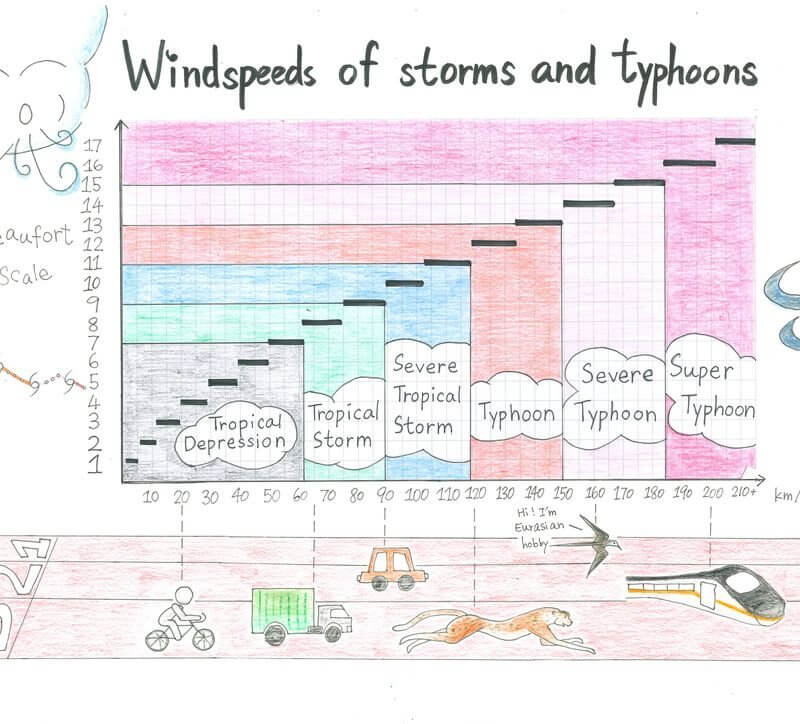 Windspeeds of storms and typhoons
17
16
15
14
13
12
11
10
9
8
7
6
5
4
3
2
1
Scale
Tropical
Depression
Tropical
Storm
Severe
Tropical
Storm
Typhoon
Severe
Typhoon
Super
Typhoon
10 20 30 40 50 60 70 80 90 100 110 120 130 140 150 160 170 180 190 200 210+ km/
Hi! I'm
Eurasian
hobby
1
2